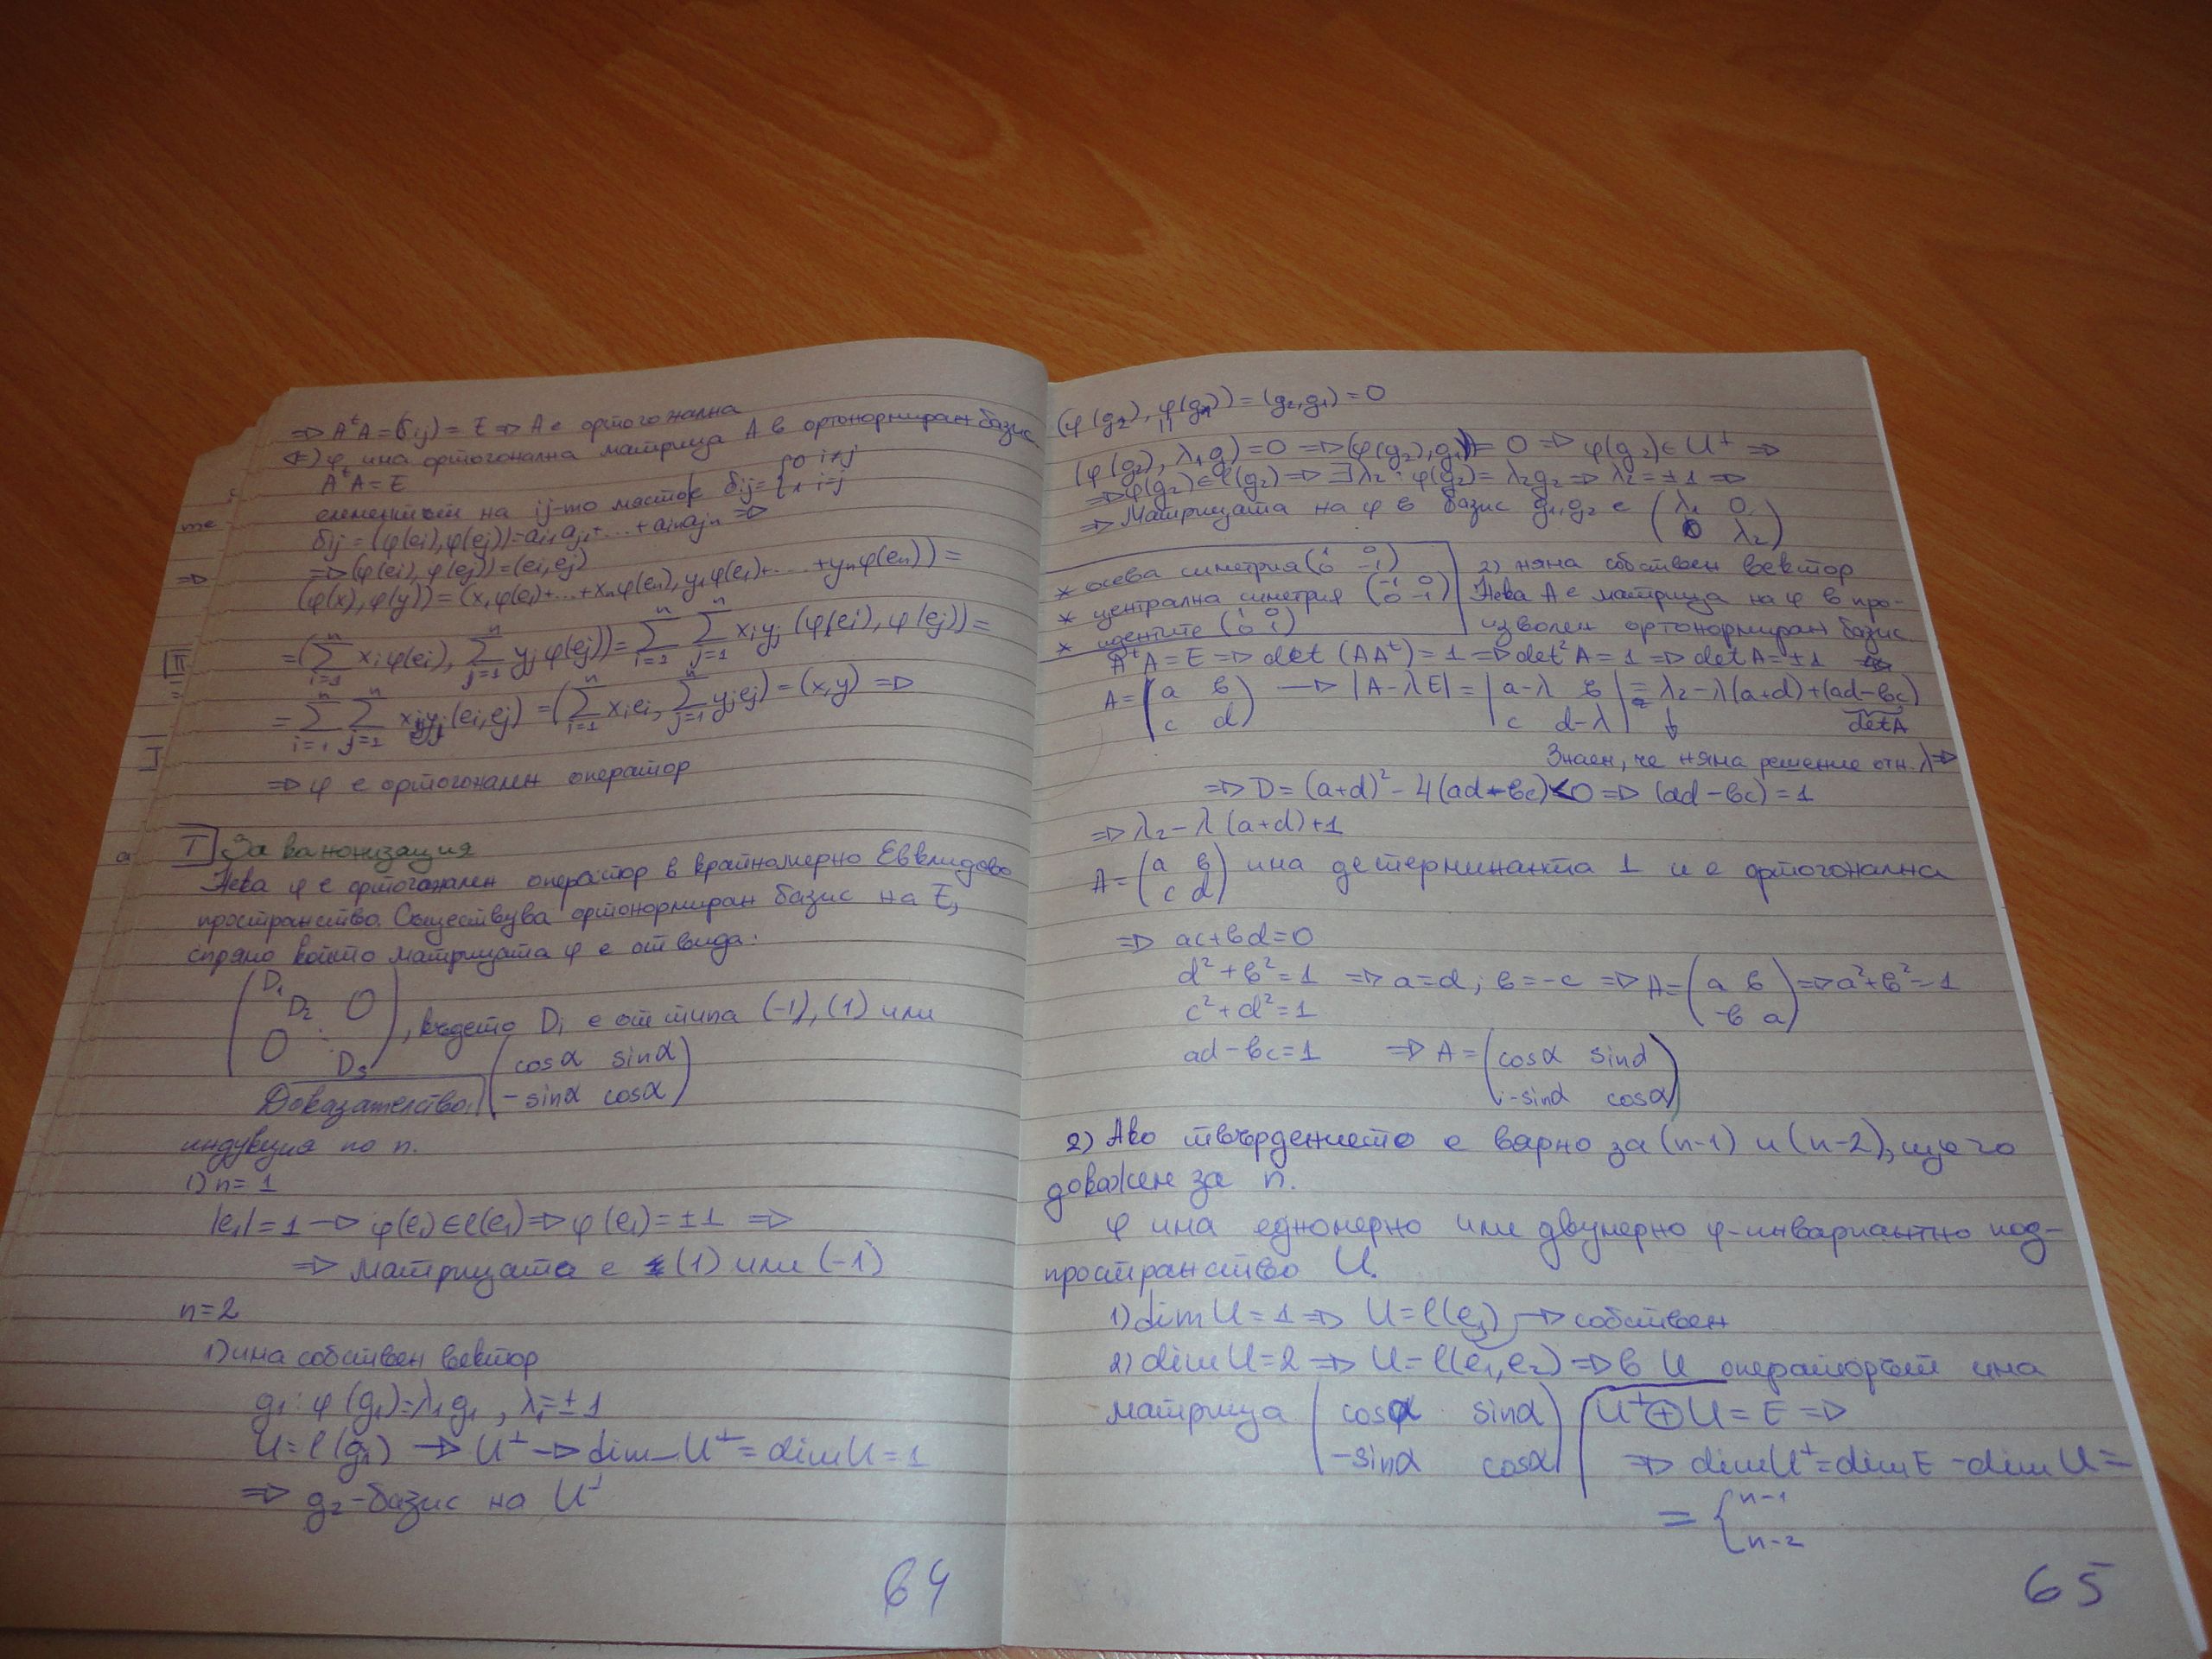 => AᵗA=(δij) = E => A е ортогонална
<=) φ има ортогонална матрица A в ортонормиран базис
AᵗA = E
елементът на ij-то място δij = {0 i≠j 1 i=j
δij = (φ(ei),φ(ej))=ai1aj1+...+ainajn =>
=> (φ(ei), φ(ej))=(ei,ej)
(φ(x), φ(y)) = (x1φ(e1)+...+xnφ(en), y1φ(e1)+...+ynφ(en)) =
= (∑ⁿi=1 xiφ(ei), ∑ⁿj=1 yjφ(ej)) = ∑ⁿi=1 ∑ⁿj=1 xiyj (φ(ei), φ(ej)) =
= ∑ⁿi=1 ∑ⁿj=1 xiyj(ei,ej) = (∑ⁿi=1 xiei, ∑ⁿj=1 yjej) = (x,y) =>
=> φ е ортогонален оператор
T За канонизация
Нека φ е ортогонален оператор в крайномерно Евклидово
пространство. Съществува ортонормиран базис на E,
спрямо който матрицата φ е от вида:
(D1 D2 0 0 ⋱ Ds), където Di е от типа (-1), (1) или
(cosα sinα
-sinα cosα)
Доказателство:
индукция по n.
1) n = 1
|e1| = 1 -> φ(e1)∈ℓ(e1) => φ(e1) = ±1 =>
=> Матрицата е (1) или (-1)
n=2
1) има собствен вектор
g1: φ(g1)=λ1g1, λ1=±1
U=ℓ(g1) -> U⊥ -> dim U⊥ = dim U = 1
=> g2-базис на U⊥
64
(φ(g2), φ(g1)) = (g2,g1) = 0
(φ(g2), λ1g1)=0 => (φ(g2),g1)= 0 => φ(g2)∈U⊥ =>
=> φ(g2)∈ℓ(g2) => ∃λ2: φ(g2) = λ2g2 => λ2 = ±1 =>
=> Матрицата на φ в базис g1,g2 е (λ1 0
0 λ2)
* осева симетрия (1 0 0 -1)
* централна симетрия (-1 0 0 -1)
* идентите (1 0 0 1)
2) няма собствен вектор
Нека A е матрица на φ в про-
изволен ортонормиран базис
AᵗA = E => det (AAᵗ) = 1 => det²A = 1 => detA = ±1
A = (a b c d) -> |A-λE| = |a-λ b c d-λ| = λ2-λ(a+d)+(ad-bc)
detA
Знаем, че няма решение отн. λ =>
=> D = (a+d)² - 4(ad-bc)<0 => (ad-bc) = 1
=> λ2-λ(a+d)+1
A = (a b c d) има детерминанта 1 и е ортогонална
=> ac+bd=0
d²+b²=1 => a=d; b=-c => A=(a b -b a) => a²+b²=1
c²+d²=1
ad-bc=1 => A = (cosα sinα
-sinα cosα)
2) Ако твърдението е варно за (n-1) и (n-2), ще го
докажем за n.
φ има едномерно или двумерно φ-инвариантно под-
пространство U.
1) dim U = 1 => U=ℓ(e1) -> собствен
2) dim U=2 => U=ℓ(e1,e2) => в U операторът има
матрица (cosα sinα
-sinα cosα)
U⊥⊕U = E =>
=> dimU⊥=dimE-dimU=
= {n-1
n-2
65